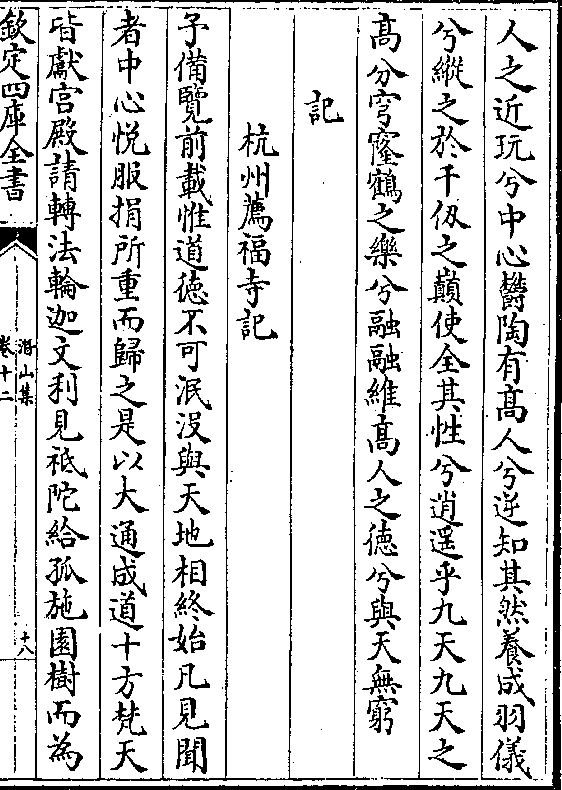 人之近玩兮中心欝陶有髙人兮逆知其然養成羽儀
兮縱之於千仭之巔使全其性兮逍遥乎九天九天之
髙兮穹窿鶴之樂兮融融維髙人之徳兮與天無窮
記
杭州薦福寺記
予備覽前載惟道徳不可泯没與天地相終始凡見聞
者中心悦服捐所重而歸之是以大通成道十方梵天
皆獻宫殿請轉法輪迦文利見祇陀給孤施園樹而為
欽定四庫全書
潛山集
卷十二
十八